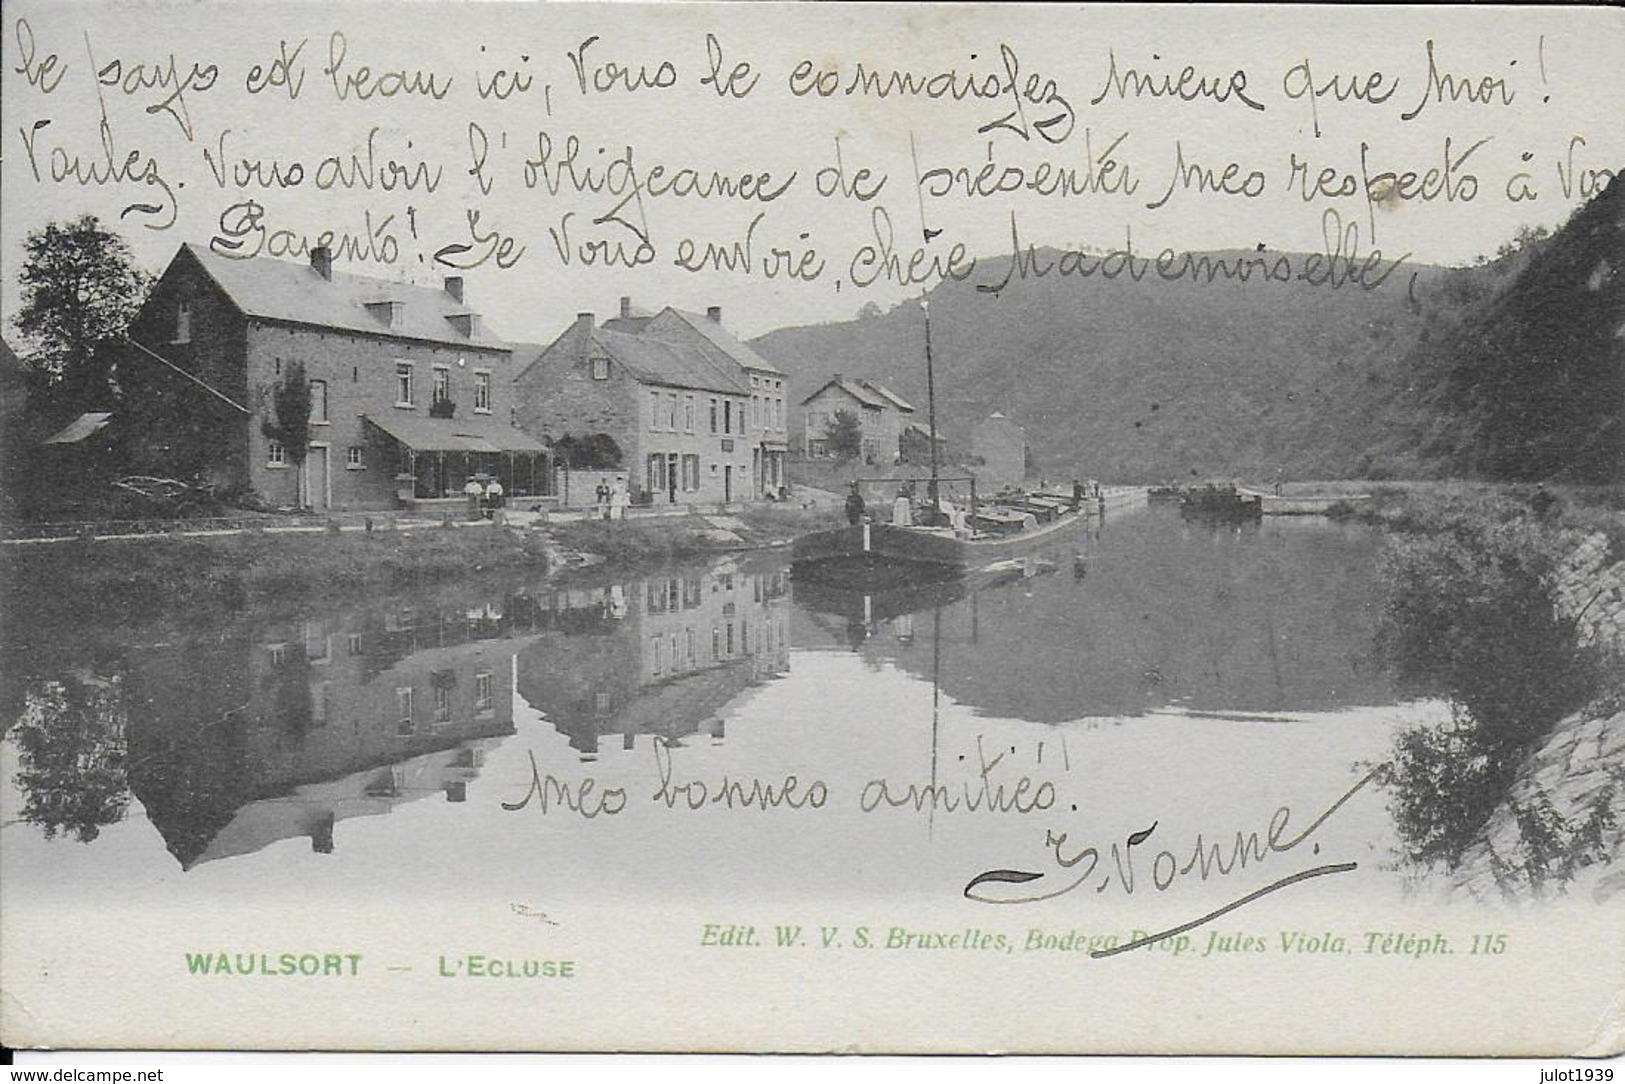 le pays est beau ici, vous le connaissez mieux que moi!
Voulez-vous avoir l'obligeance de présenter mes respects à vos
Parents! Je vous envoie, chère Mademoiselle,
mes bonnes amitiés!
Yvonne.
Edit. W. V. S. Bruxelles, Bodega Prop. Jules Viola, Téléph. 115
WAULSORT — L'ECLUSE
www.delcampe.net
julot1939